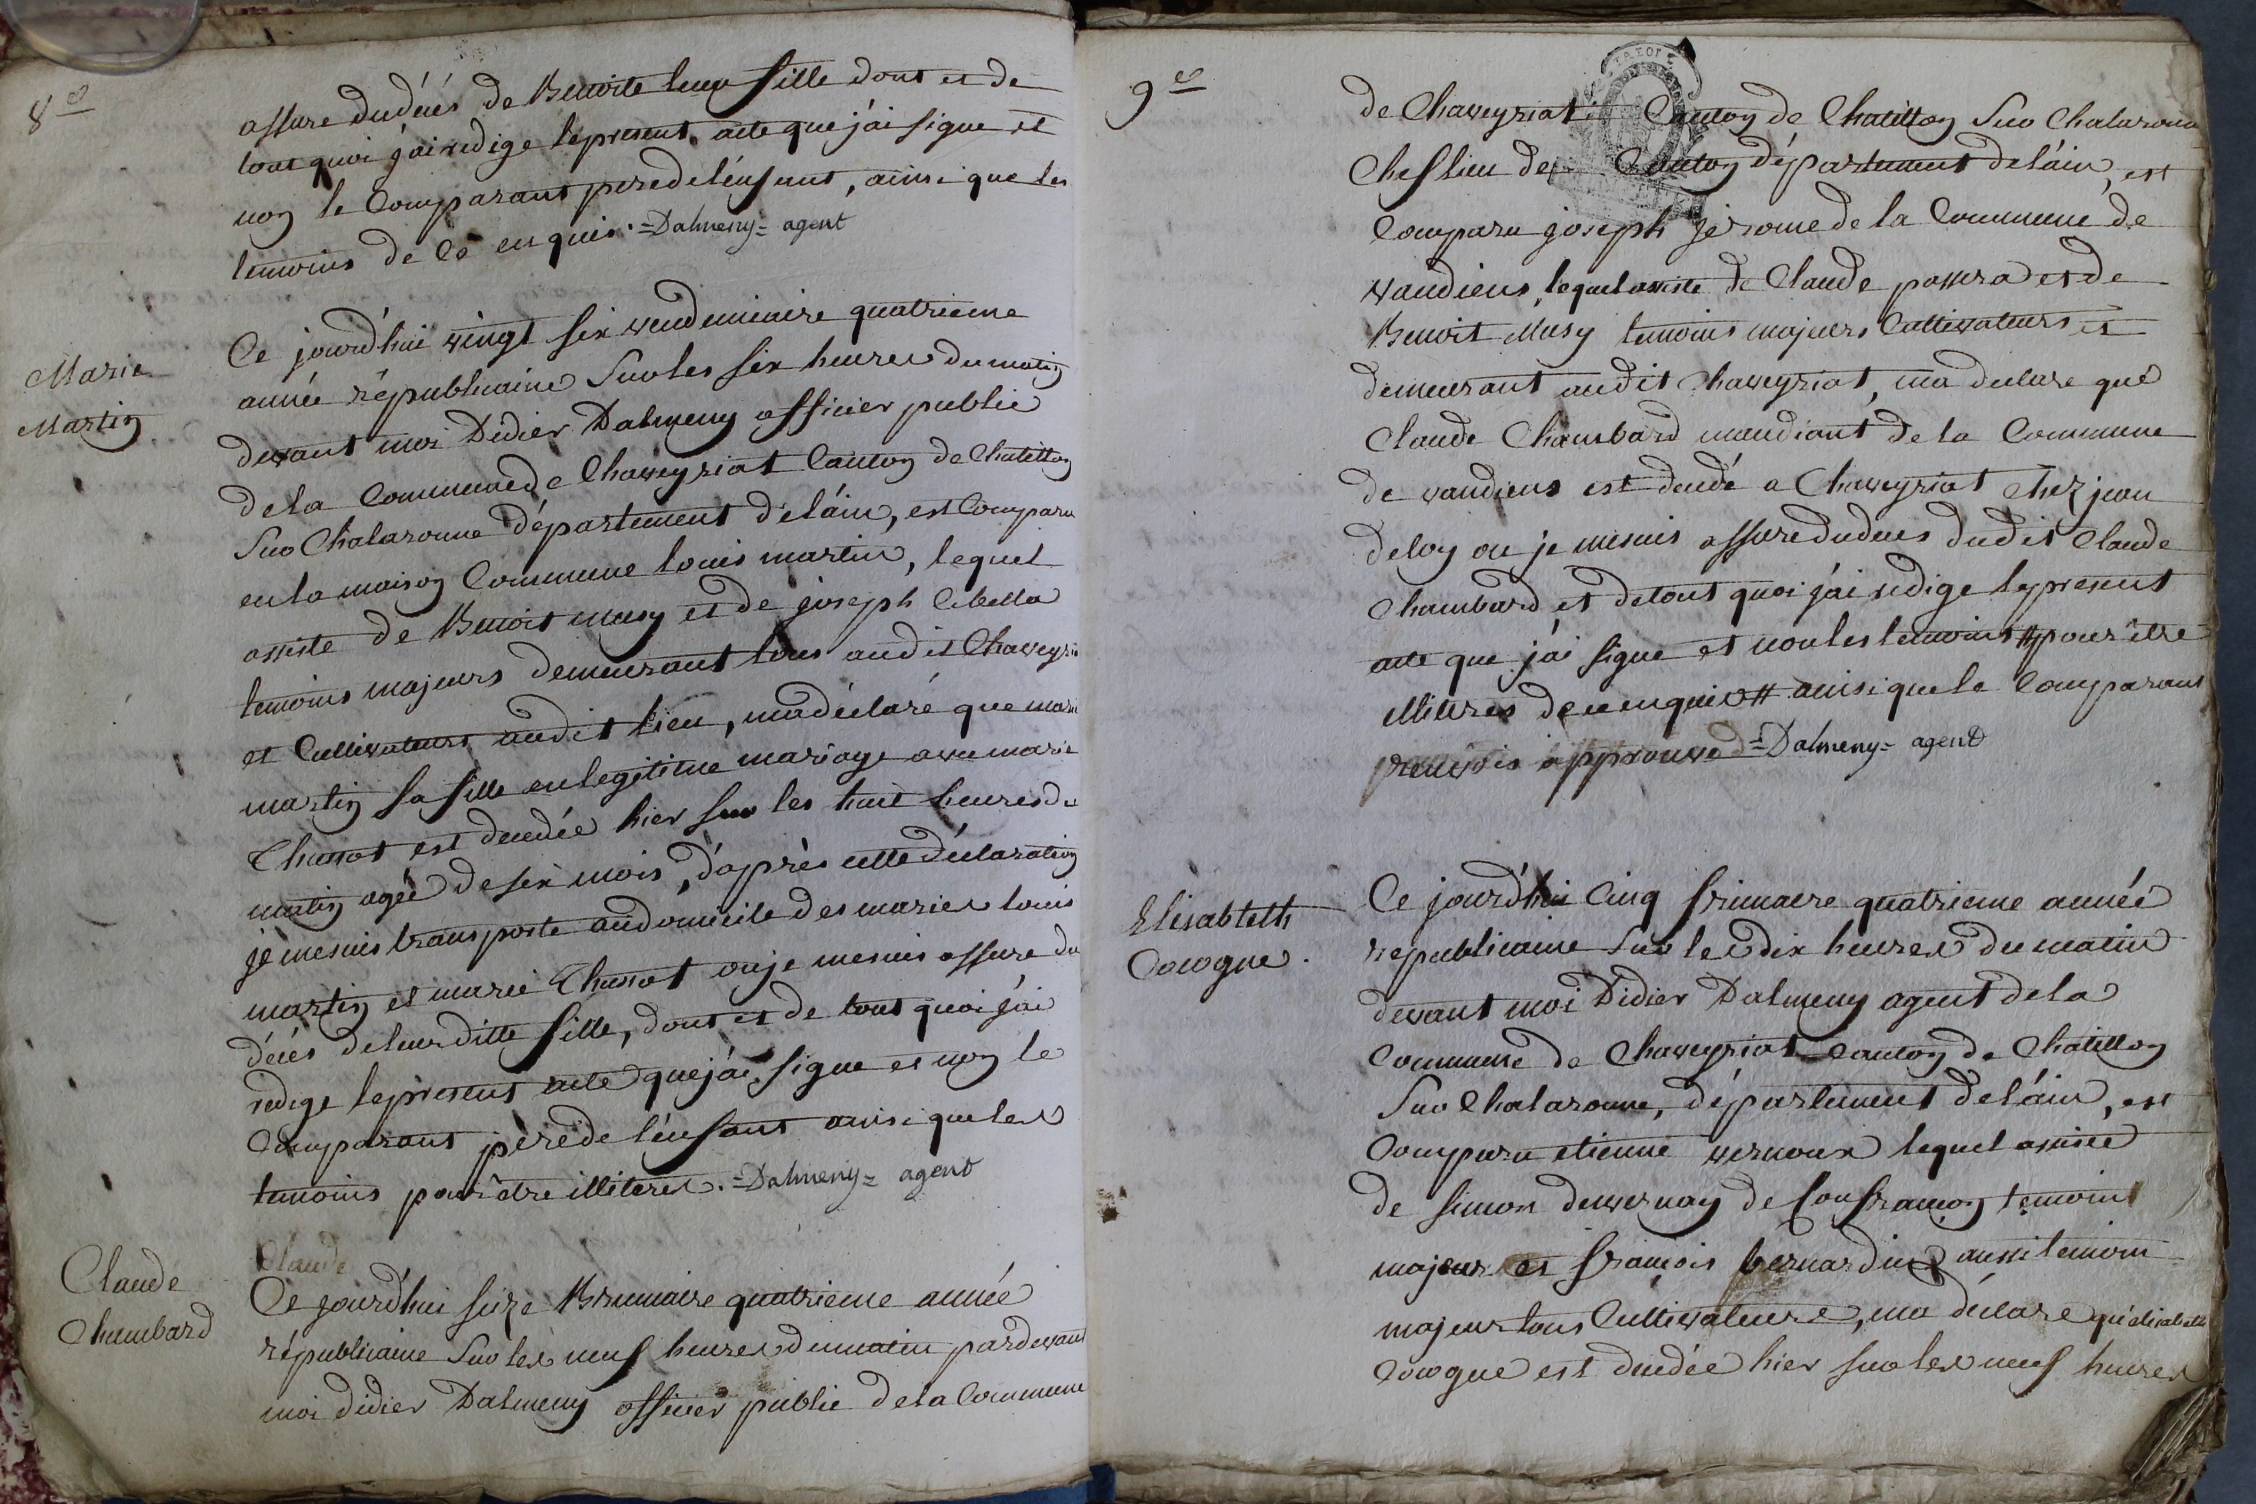 8e
assure du décés de Benoite leur fille dont et de
tout quoi j'ai redige le present acte que j'ai signe et
non le Comparant pere de l'enfant, ainsi que les
temoins de ce enquis. =Dalmeny= agent
Marie
Martin
Ce jourd'hui vingt six vendemiaire quatrieme
année républicaine Sur les six heures du matin
devant moi Didier Dalmeny officier public
de la Commune de Chaveyriat Canton de Chatillon
Sur Chalaronne département de l'áin, est Comparu
en la maison Commune louis martin, lequel
assiste de Benoit musy et de joseph Cibella
temoins majeurs demeurant tous audit Chaveyriat
et Cultivateurs audit lieu, ma déclaré que marie
martin sa fille en legitime mariage avec marie
Chanot est decedée hier sur les huit heures du
matin agée de six mois, d'après cette déclaration
je me suis transporte au domicile des maries louis
martin et marie Chanot ou je me suis assure du
décés de leur ditte fille, dont et de tout quoi j'ai
redige le present acte que j'ai signe et non le
Comparant père de l'enfant ainsi que les
temoins pour être illiteres. =Dalmeny= agent
Claude
Chambard
Claude
Ce jourd'hui seize Brumaire quatrieme année
républicaine Sur les neuf heures du matin pardevant
moi didier Dalmeny officier public de la Commune
9e
de Chaveyriat Canton de Chatillon Sur Chalaronne
Chef lieu de Canton département de l'áin, est
Comparu joseph jérome de la Commune de
vandiens, lequel assiste de Claude passera et de
Benoit Musy temoins majeurs Cultivateurs et
demeurant audit Chaveyriat, ma declare que
Claude Chambard mandiant de la Commune
de vandiens est decedé a Chaveyriat Chez jean
deloy ou je me suis assure du deces dudit Claude
Chambard et de tout quoi j'ai redige le present
acte que j'ai signe et non les temoins # pour être
illiteres de ce enquis # ainsi que le Comparant
renvois approuve =Dalmeny= agent
Elisabteth
Cocogne.
Ce jourd'hui Cinq frimaire quatrieme année
republicaine Sur les dix heures du matin
devant moi Didier Dalmeny agent de la
Commune de Chaveyriat Canton de Chatillon
Sur Chalaronne, département de l'áin, est
Comparu etienne vernoux lequel assisté
de simon duvernay de Confrancon temoins
majeur et françois bernardin aussi temoin
majeur tous Cultivateurs, ma déclare qu'elisabette
Cocogne est decedée hier sur les neuf heures